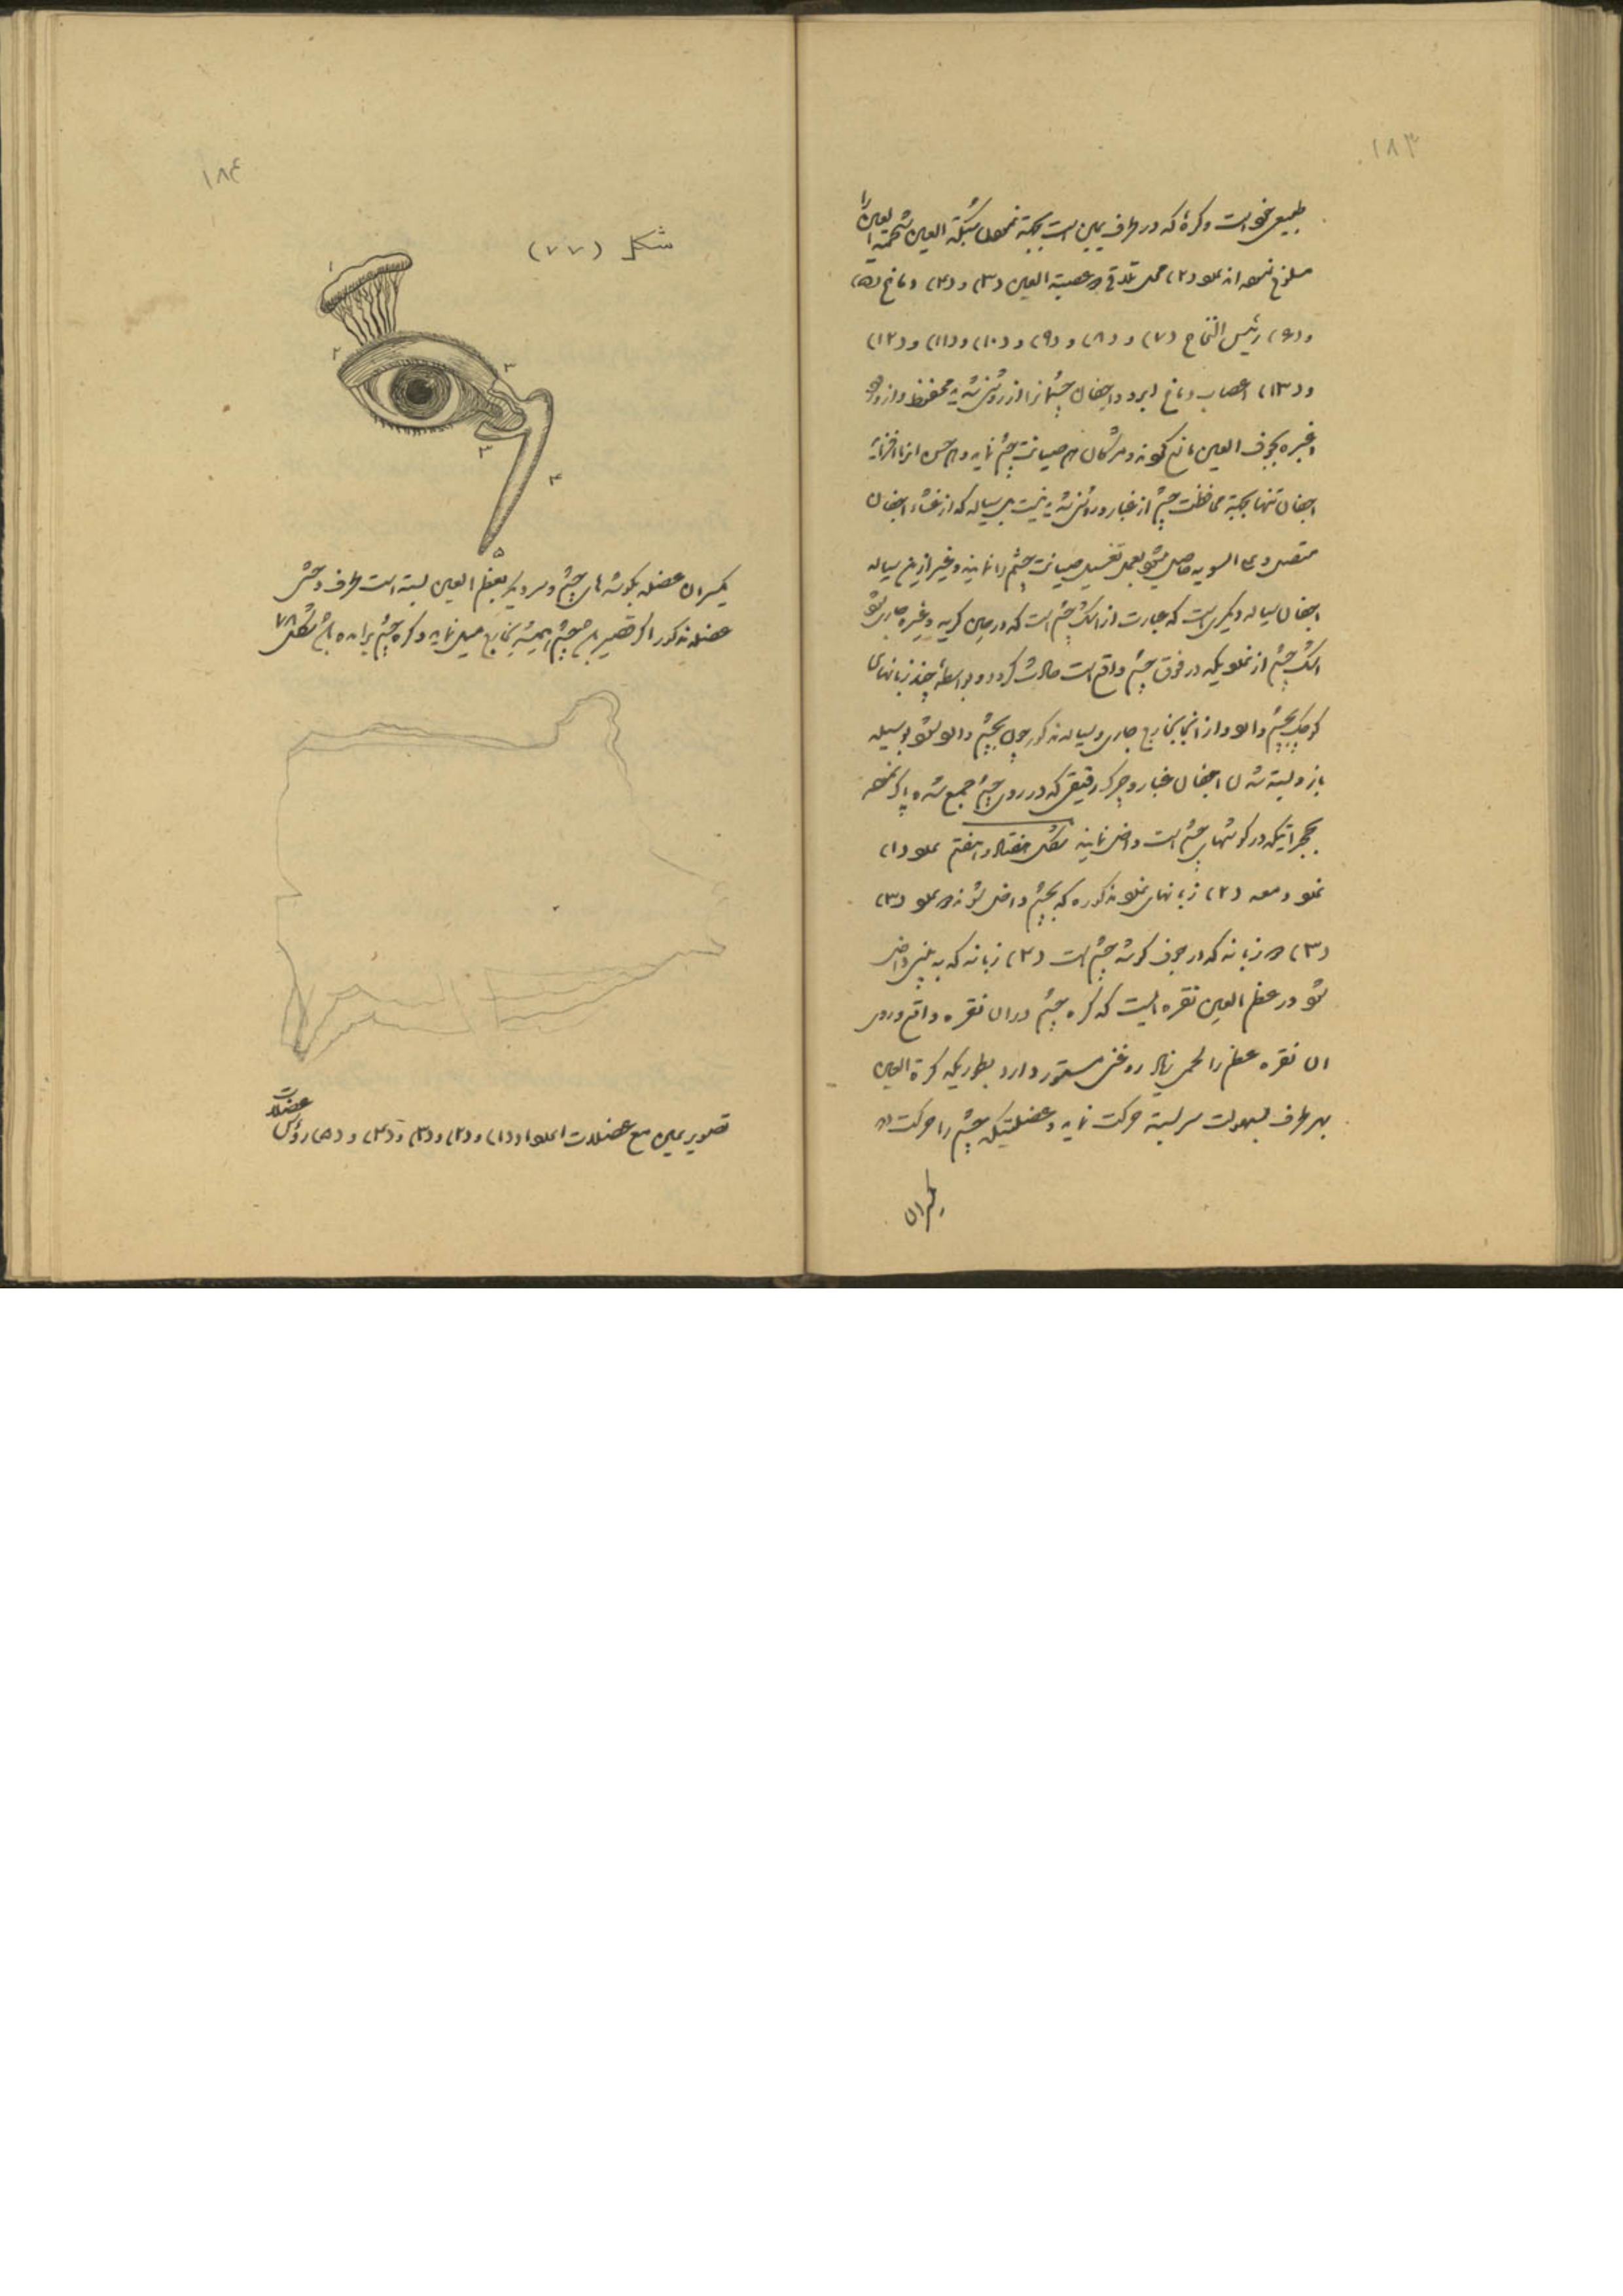 ۱۸۳
طبیعی خود است و کرهٔ که در طرف یمین است بجهته نمودن شبکة العین شحمیة العین را
مسلوخ نموده اند علو (۲) محل تلاقی ۳ عصبیة العین (۳) و (۴) دماغ (۵)
و (۶) رئیس النخاع (۷) و (۸) و (۹) و (۱۰) و (۱۱) و (۱۲)
و (۱۳) اعصاب دماغ ابرو و اجفان چشمانرا از روشنی شدید محفوظ و از ورود
اغبره بجوف العین مانع کونه و مژکان هم صیانت چشم نماید و هم حسن انرا افزاید
اجفان تنها بجهته محافظت چشم از غبار و روشنی شدید نیست بل سیاله که از غشاء اجفان
متصل و علی السویه حاصل میشود بعمل تغسیل صیانت چشم را نمایند و غیر ازین سیاله
اجفان سیاله دیگری است که عبارت از اشک چشم است که در حین کریه و غیره جاری شود
اشک چشم از غلویکه در فوق چشم واقع است حادث کردد و بواسطهٔ چند زبانهای
کوچک بچشم داخل و از انجا بخارج جاری و سیاله مذکور چون بچشم داخل شود بوسیله
باز و بسته شدن اجفان غبار و چرک رقیقی که در روی چشم جمع شده پاک نموده
بحجراتیکه در کوشهای چشم است داخل نمایند شکل هفتاد و هفتم علو (۱)
غلو دمعه (۲) زبانهای غلو مذکوره که بچشم داخل شوند علو (۳)
(۳) زبانه که در جوف کوشه چشم است (۴) زبانه که به بینی داخل
شود در عظم العین نقره ایست که کره چشم در ان نقره واقع و روی
ان نقره عظم را لحمی زیاد روغنی مستور دارد بطوریکه کرة العین
بهر طرف بسهولت سربسته حرکت نماید و عضلتیکه چشم را حرکت دهد
یکسران
۱۸۴
شکل (۷۷)
۱
۲
۳
۳
۴
۵
یکسران عضله بکوشه های چشم و سر دیگر بعظم العین بسته است طرف وحشی
عضله مذکور اگر قصیر باشد چشم همیشه بخارج میل نماید و کره چشم برامده باشد شکل ۷۸
تصویر یمین مع عضلات اعلوا (۱) و (۲) و (۳) و (۴) و (۵) رؤس عضلات